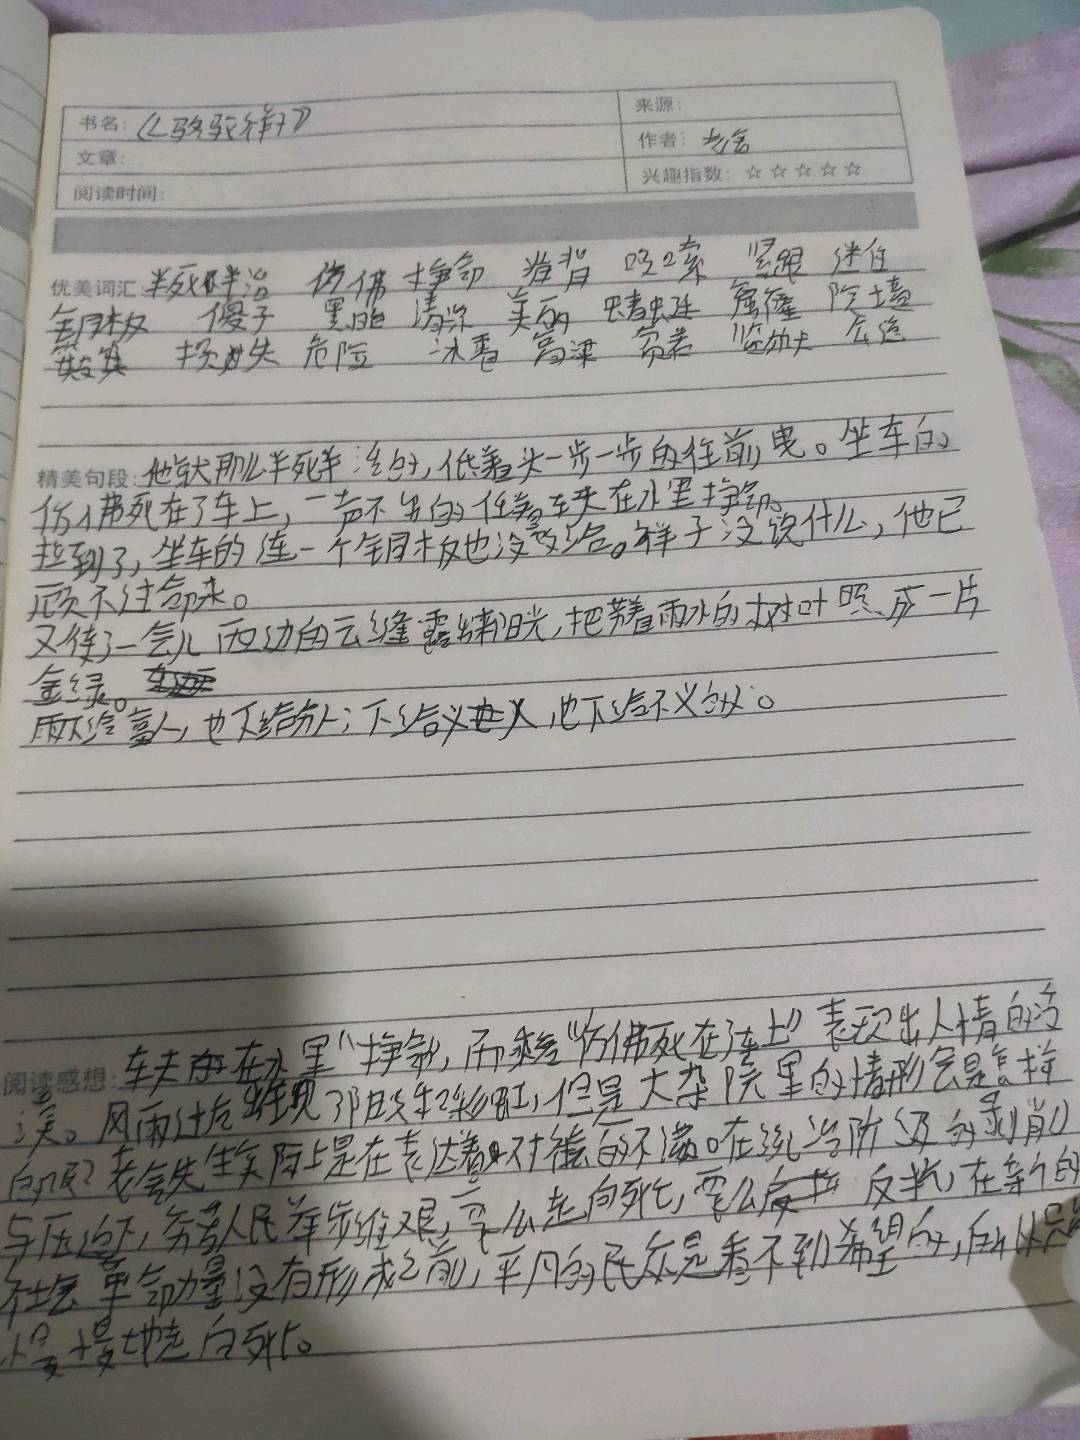 书名：《骆驼祥子》
来源：
文章：
作者：老舍
阅读时间：
兴趣指数：☆☆☆☆☆
优美词汇 半死半活 仿佛 挣命 脊背 哆嗦 紧跟 迷住
铜板 傻子 黑暗 清凉 美丽 蜻蜓 院墙
损失 危险 冰雹 高粱 贫苦 公道
精美句段：他就那么半死半活的，低着头一步一步的往前曳。坐车的
仿佛死在了车上，一声不出的任着车夫在水里挣命。
拉到了，坐车的连一个铜板也没多给。祥子没说什么，他已
顾不过命来。
又待了一会儿，西边的云缝露出来阳光，把带着雨水的树叶照成一片
金绿。
雨下给富人，也下给穷人；下给义人，也下给不义的人。
阅读感想：车夫在水里"挣命"，而乘客"仿佛死在了车上"表现出人情的冷
漠。风雨过后出现了阳光和彩虹，但是大杂院里的情形会是怎样
的呢？老舍先生实际上是在表达着对社会的不满。在统治阶级的剥削
与压迫下，穷苦人民举步维艰，要么走向死亡，要么反抗，在新的
社会革命力量没有形成之前，平凡的民众是看不到希望的，所以只能
慢慢地走向死亡。